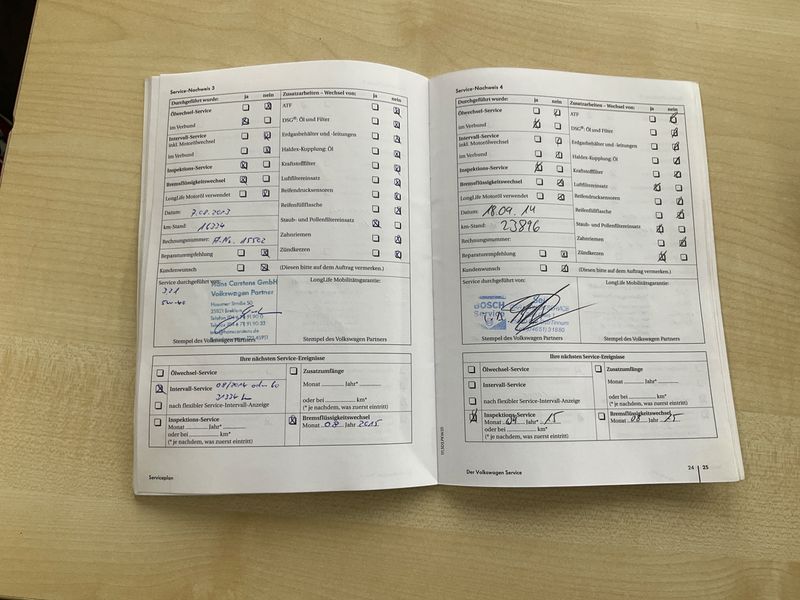 Service-Nachweis 3
Durchgeführt wurde: ja nein
Ölwechsel-Service
im Verbund
Intervall-Service
inkl. Motorölwechsel
im Verbund
Inspektions-Service
Bremsflüssigkeitswechsel
LongLife Motoröl verwendet
Datum: 7.08.2013
km-Stand: 16334
Rechnungsnummer: 15502
Reparaturempfehlung
Kundenwunsch
Zusatzarbeiten – Wechsel von: ja nein
ATF
DSG®: Öl und Filter
Erdgasbehälter und -leitungen
Haldex-Kupplung: Öl
Kraftstofffilter
Luftfiltereinsatz
Reifendrucksensoren
Reifenfüllflasche
Staub- und Pollenfiltereinsatz
Zahnriemen
Zündkerzen
(Diesen bitte auf dem Auftrag vermerken.)
Service durchgeführt von:
Hans Carstens GmbH
Volkswagen Partner
Husumer Straße 50
Stempel des Volkswagen Partners
LongLife Mobilitätsgarantie:
Stempel des Volkswagen Partners
Ihre nächsten Service-Ereignisse
Ölwechsel-Service
Intervall-Service 08/2014
31334
nach flexibler Service-Intervall-Anzeige
Inspektions-Service
Monat Jahr*
oder bei km*
(* je nachdem, was zuerst eintritt)
Zusatzumfänge
Monat Jahr*
oder bei km*
(* je nachdem, was zuerst eintritt)
Bremsflüssigkeitswechsel
Monat 08 Jahr 2015
Serviceplan
Service-Nachweis 4
Durchgeführt wurde: ja nein
Ölwechsel-Service
im Verbund
Intervall-Service
inkl. Motorölwechsel
im Verbund
Inspektions-Service
Bremsflüssigkeitswechsel
LongLife Motoröl verwendet
Datum: 18.09.14
km-Stand: 23896
Rechnungsnummer:
Reparaturempfehlung
Kundenwunsch
Zusatzarbeiten – Wechsel von: ja nein
ATF
DSG®: Öl und Filter
Erdgasbehälter und -leitungen
Haldex-Kupplung: Öl
Kraftstofffilter
Luftfiltereinsatz
Reifendrucksensoren
Reifenfüllflasche
Staub- und Pollenfiltereinsatz
Zahnriemen
Zündkerzen
(Diesen bitte auf dem Auftrag vermerken.)
Service durchgeführt von:
BOSCH
Service
Stempel des Volkswagen Partners
LongLife Mobilitätsgarantie:
Stempel des Volkswagen Partners
Ihre nächsten Service-Ereignisse
Ölwechsel-Service
Intervall-Service
nach flexibler Service-Intervall-Anzeige
Inspektions-Service
Monat 09 Jahr* 15
oder bei km*
(* je nachdem, was zuerst eintritt)
Zusatzumfänge
Monat Jahr*
oder bei km*
(* je nachdem, was zuerst eintritt)
Bremsflüssigkeitswechsel
Monat 08 Jahr 15
Der Volkswagen Service
24 25